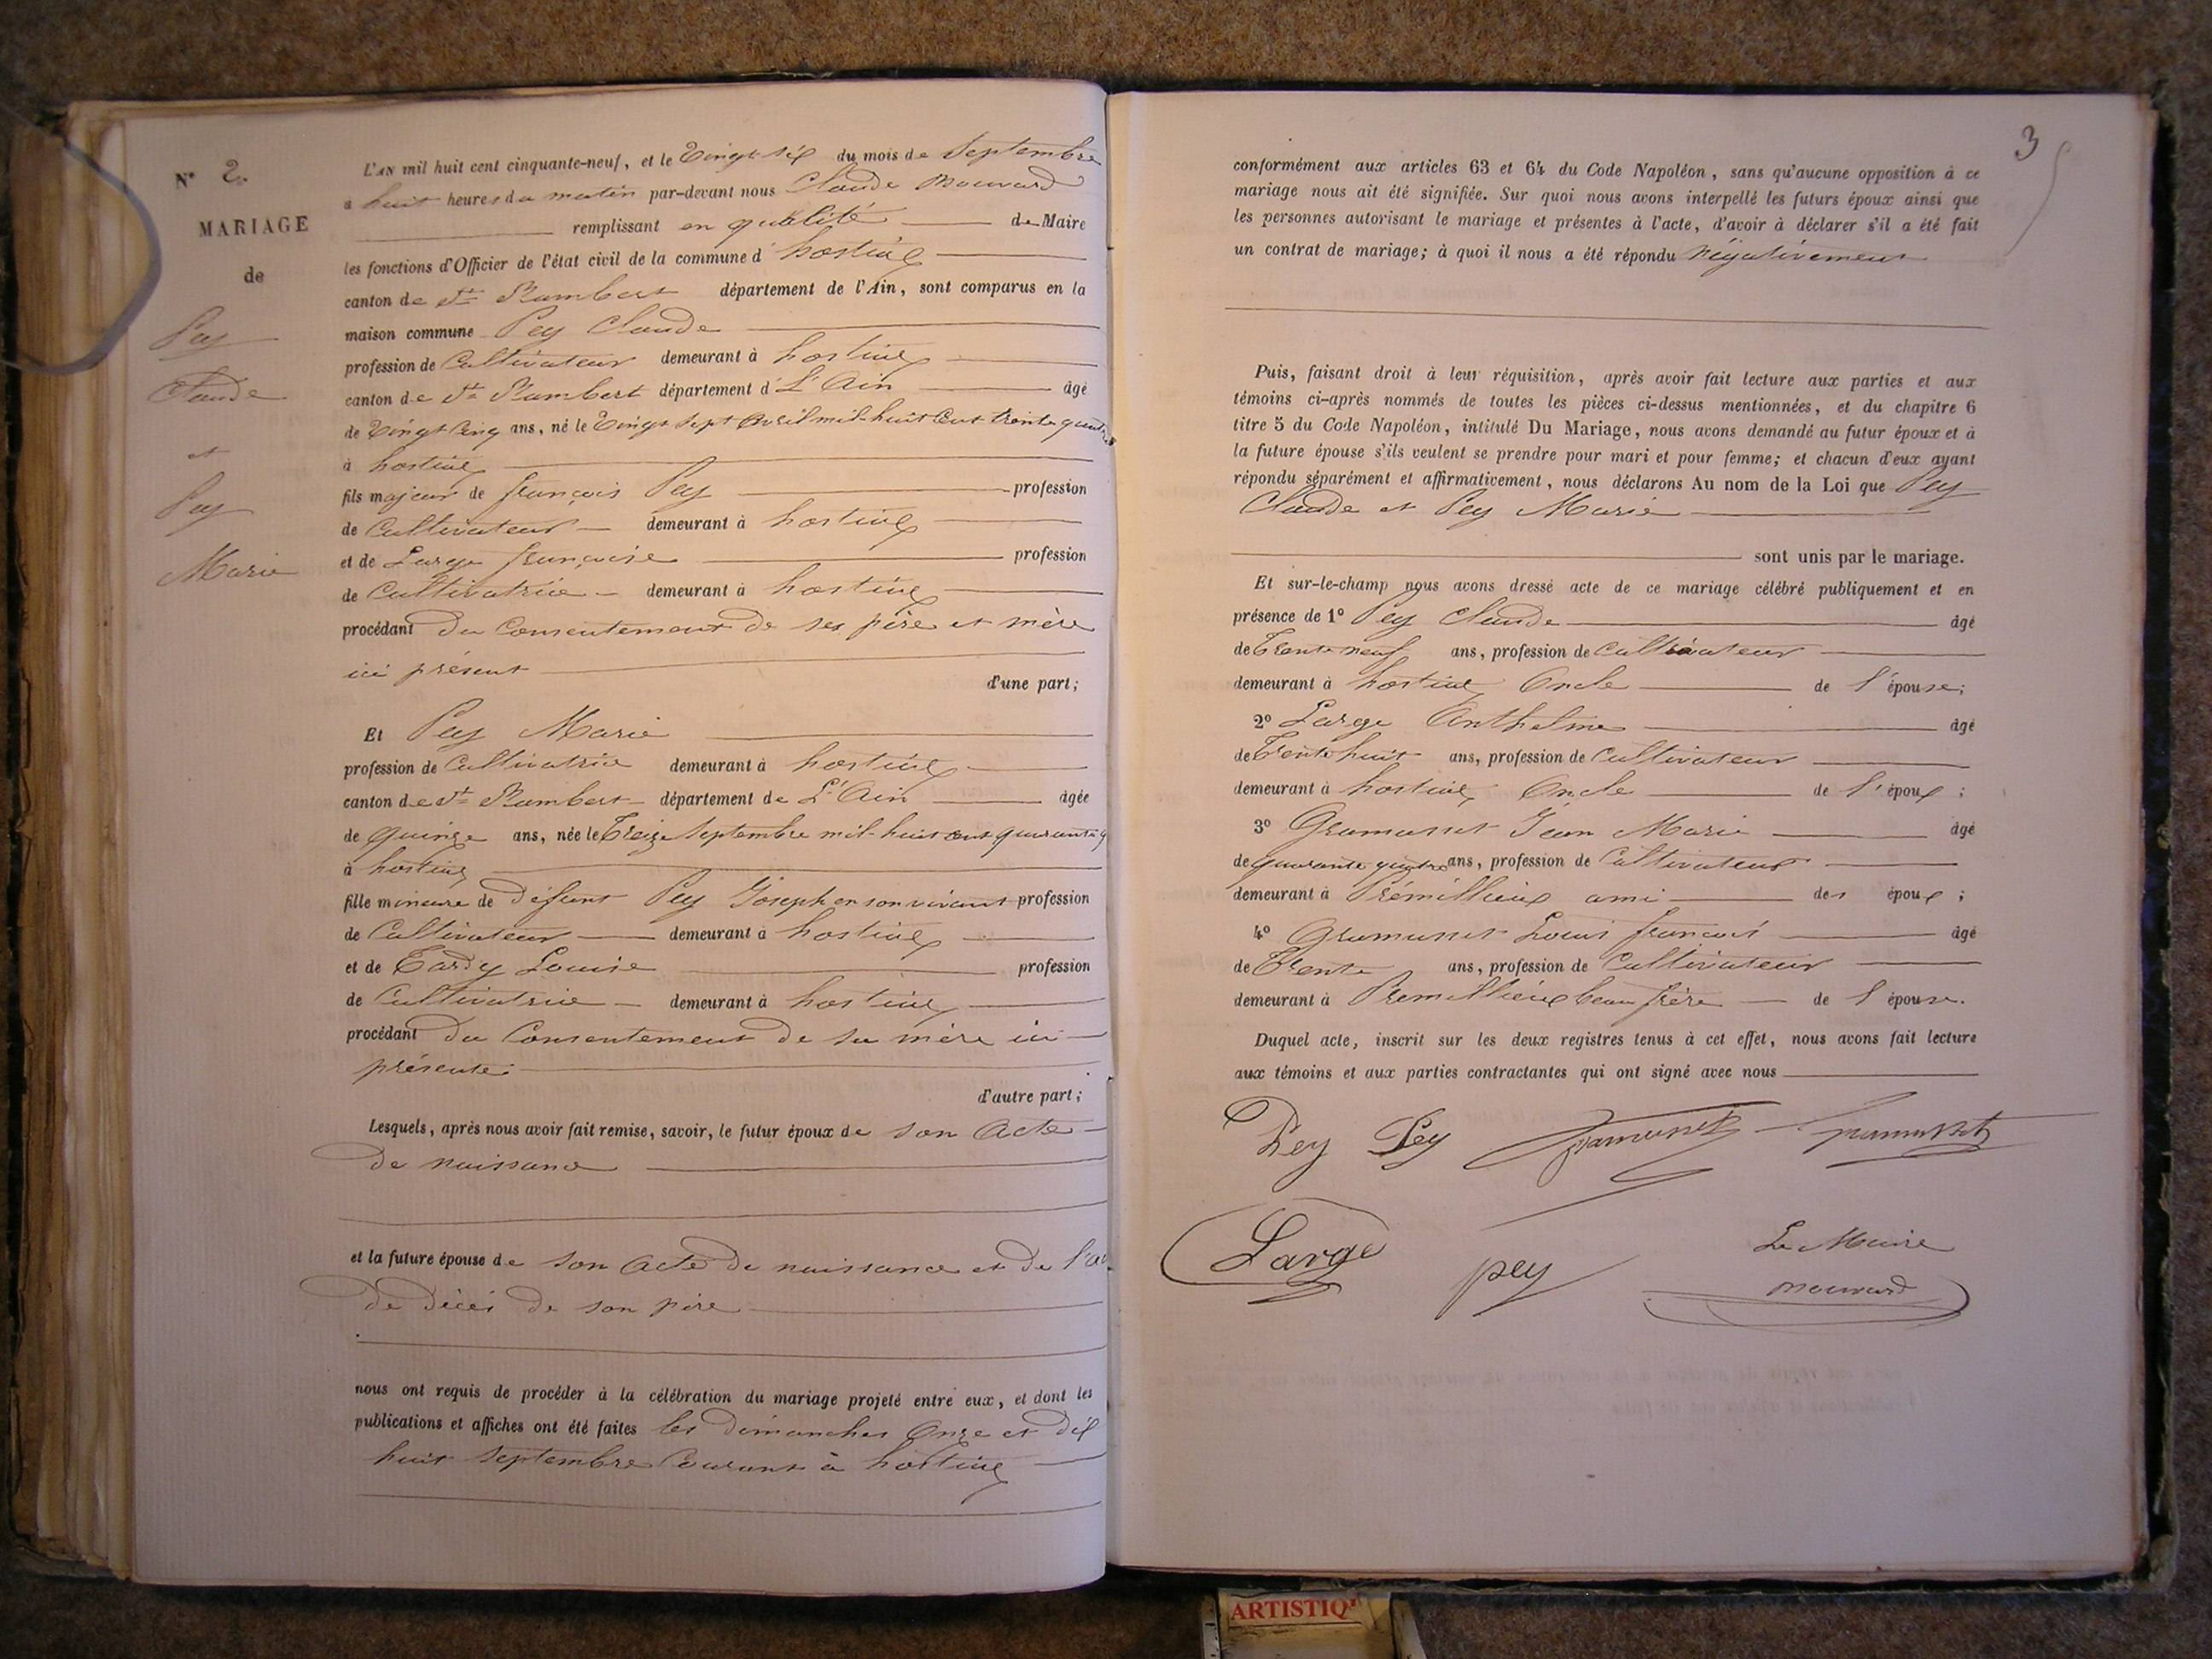 N° 2.
MARIAGE
de
Pey
Claude
et
Pey
Marie
L'AN mil huit cent cinquante-neuf, et le Vingt six du mois de Septembre
à huit heures du matin par-devant nous Claude
remplissant en qualité de Maire
les fonctions d'Officier de l'état civil de la commune d' hostiaz
canton de St Rambert département de l'Ain, sont comparus en la
maison commune Pey Claude
profession de Cultivateur demeurant à hostiaz
canton de St Rambert département d L'Ain âgé
de Vingt Cinq ans, né le Vingt Sept Avril mil-huit Cent trente quatre
à hostiaz
fils majeur de françois Pey profession
de Cultivateur demeurant à hostiaz
et de Large françoise profession
de Cultivatrice demeurant à hostiaz
procédant du Consentement de ses père et mère
ici présent
d'une part;
Et Pey Marie
profession de Cultivatrice demeurant à hostiaz
canton de St Rambert département de L'Ain âgée
de quinze ans, née le Treize Septembre mil-huit cent quarante q
à hostiaz
fille mineure de Défunt Pey Joseph en son vivant profession
de Cultivateur demeurant à hostiaz
et de Tardy Louise profession
de Cultivatrice demeurant à hostiaz
procédant du Consentement de sa mère ici
présente
d'autre part;
Lesquels, après nous avoir fait remise, savoir, le futur époux de son Acte
de naissance
et la future épouse de son Acte de naissance et de l'ac
de décès de son père
nous ont requis de procéder à la célébration du mariage projeté entre eux, et dont les
publications et affiches ont été faites les dimanches Onze et dix
huit Septembre Courant à hostiaz
3
conformément aux articles 63 et 64 du Code Napoléon, sans qu'aucune opposition à ce
mariage nous ait été signifiée. Sur quoi nous avons interpellé les futurs époux ainsi que
les personnes autorisant le mariage et présentes à l'acte, d'avoir à déclarer s'il a été fait
un contrat de mariage; à quoi il nous a été répondu Négativement
Puis, faisant droit à leur réquisition, après avoir fait lecture aux parties et aux
témoins ci-après nommés de toutes les pièces ci-dessus mentionnées, et du chapitre 6
titre 5 du Code Napoléon, intitulé Du Mariage, nous avons demandé au futur époux et à
la future épouse s'ils veulent se prendre pour mari et pour femme; et chacun d'eux ayant
répondu séparément et affirmativement, nous déclarons Au nom de la Loi que Pey
Claude et Pey Marie
sont unis par le mariage.
Et sur-le-champ nous avons dressé acte de ce mariage célébré publiquement et en
présence de 1° Pey Claude âgé
de Trente neuf ans, profession de Cultivateur
demeurant à hostiaz Oncle de l'épouse;
2° Large Anthelme âgé
de Trente huit ans, profession de Cultivateur
demeurant à hostiaz Oncle de l'époux;
3° Gramusset Jean Marie âgé
de quarante quatre ans, profession de Cultivateur
demeurant à Prémillieux ami des époux;
4° Gramusset Louis françois âgé
de Trente ans, profession de Cultivateur
demeurant à Premillieux beau frère de l'épouse.
Duquel acte, inscrit sur les deux registres tenus à cet effet, nous avons fait lecture
aux témoins et aux parties contractantes qui ont signé avec nous
Pey Pey Gramusset Gramusset
Large pey Le Maire
ARTISTIQ